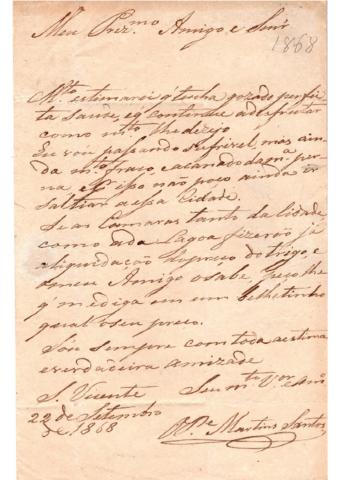 Meu Prez.mo Amigo e Senr
1868
M.to estimarei q' tenha gozado perfei
ta Saude, e q' continue a desfructar
como m.to lhe dezejo
Eu vou passando soffrivel, mas ain
da m.to fraco, e da m.a per
na, e por isso não posso ainda ir
saltiar a essa Cidade.
Se as Camaras tanto da Cidade,
como a da Lagoa fizerão já
aliquidação do preço do trigo, e
o meu Amigo o sabe, peço lhe
q' m'o diga em um bilhetinho
qual o seu preço.
Sou sempre com toda a estima
e verdadeira amizade
S. Vicente Seu m.to V.or e Am.o
22 de Setembro
de 1868
O P.e Martins Santos